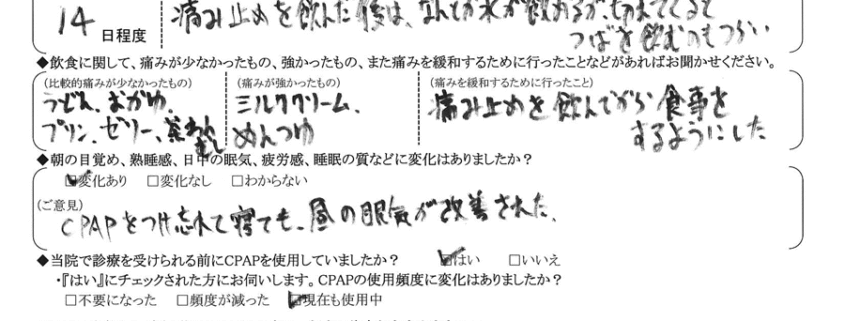 14 日程度
痛み止めを飲んだ後は、なんとか水が飲めるが、切れてくると
つばを飲むのもつらい
◆飲食に関して、痛みが少なかったもの、強かったもの、また痛みを緩和するために行ったことなどがあればお聞かせください。
(比較的痛みが少なかったもの)
うどん、おかゆ、
プリン、ゼリー、茶わんむし
(痛みが強かったもの)
ミルククリーム、
めんつゆ
(痛みを緩和するために行ったこと)
痛み止めを飲んでから食事を
するようにした
◆朝の目覚め、熟睡感、日中の眠気、疲労感、睡眠の質などに変化はありましたか?
☑変化あり □変化なし □わからない
(ご意見)
CPAPをつけ忘れて寝ても、昼の眠気が改善された。
◆当院で診療を受けられる前にCPAPを使用していましたか? ☑はい □いいえ
・『はい』にチェックされた方にお伺いします。CPAPの使用頻度に変化はありましたか?
□不要になった □頻度が減った ☑現在も使用中